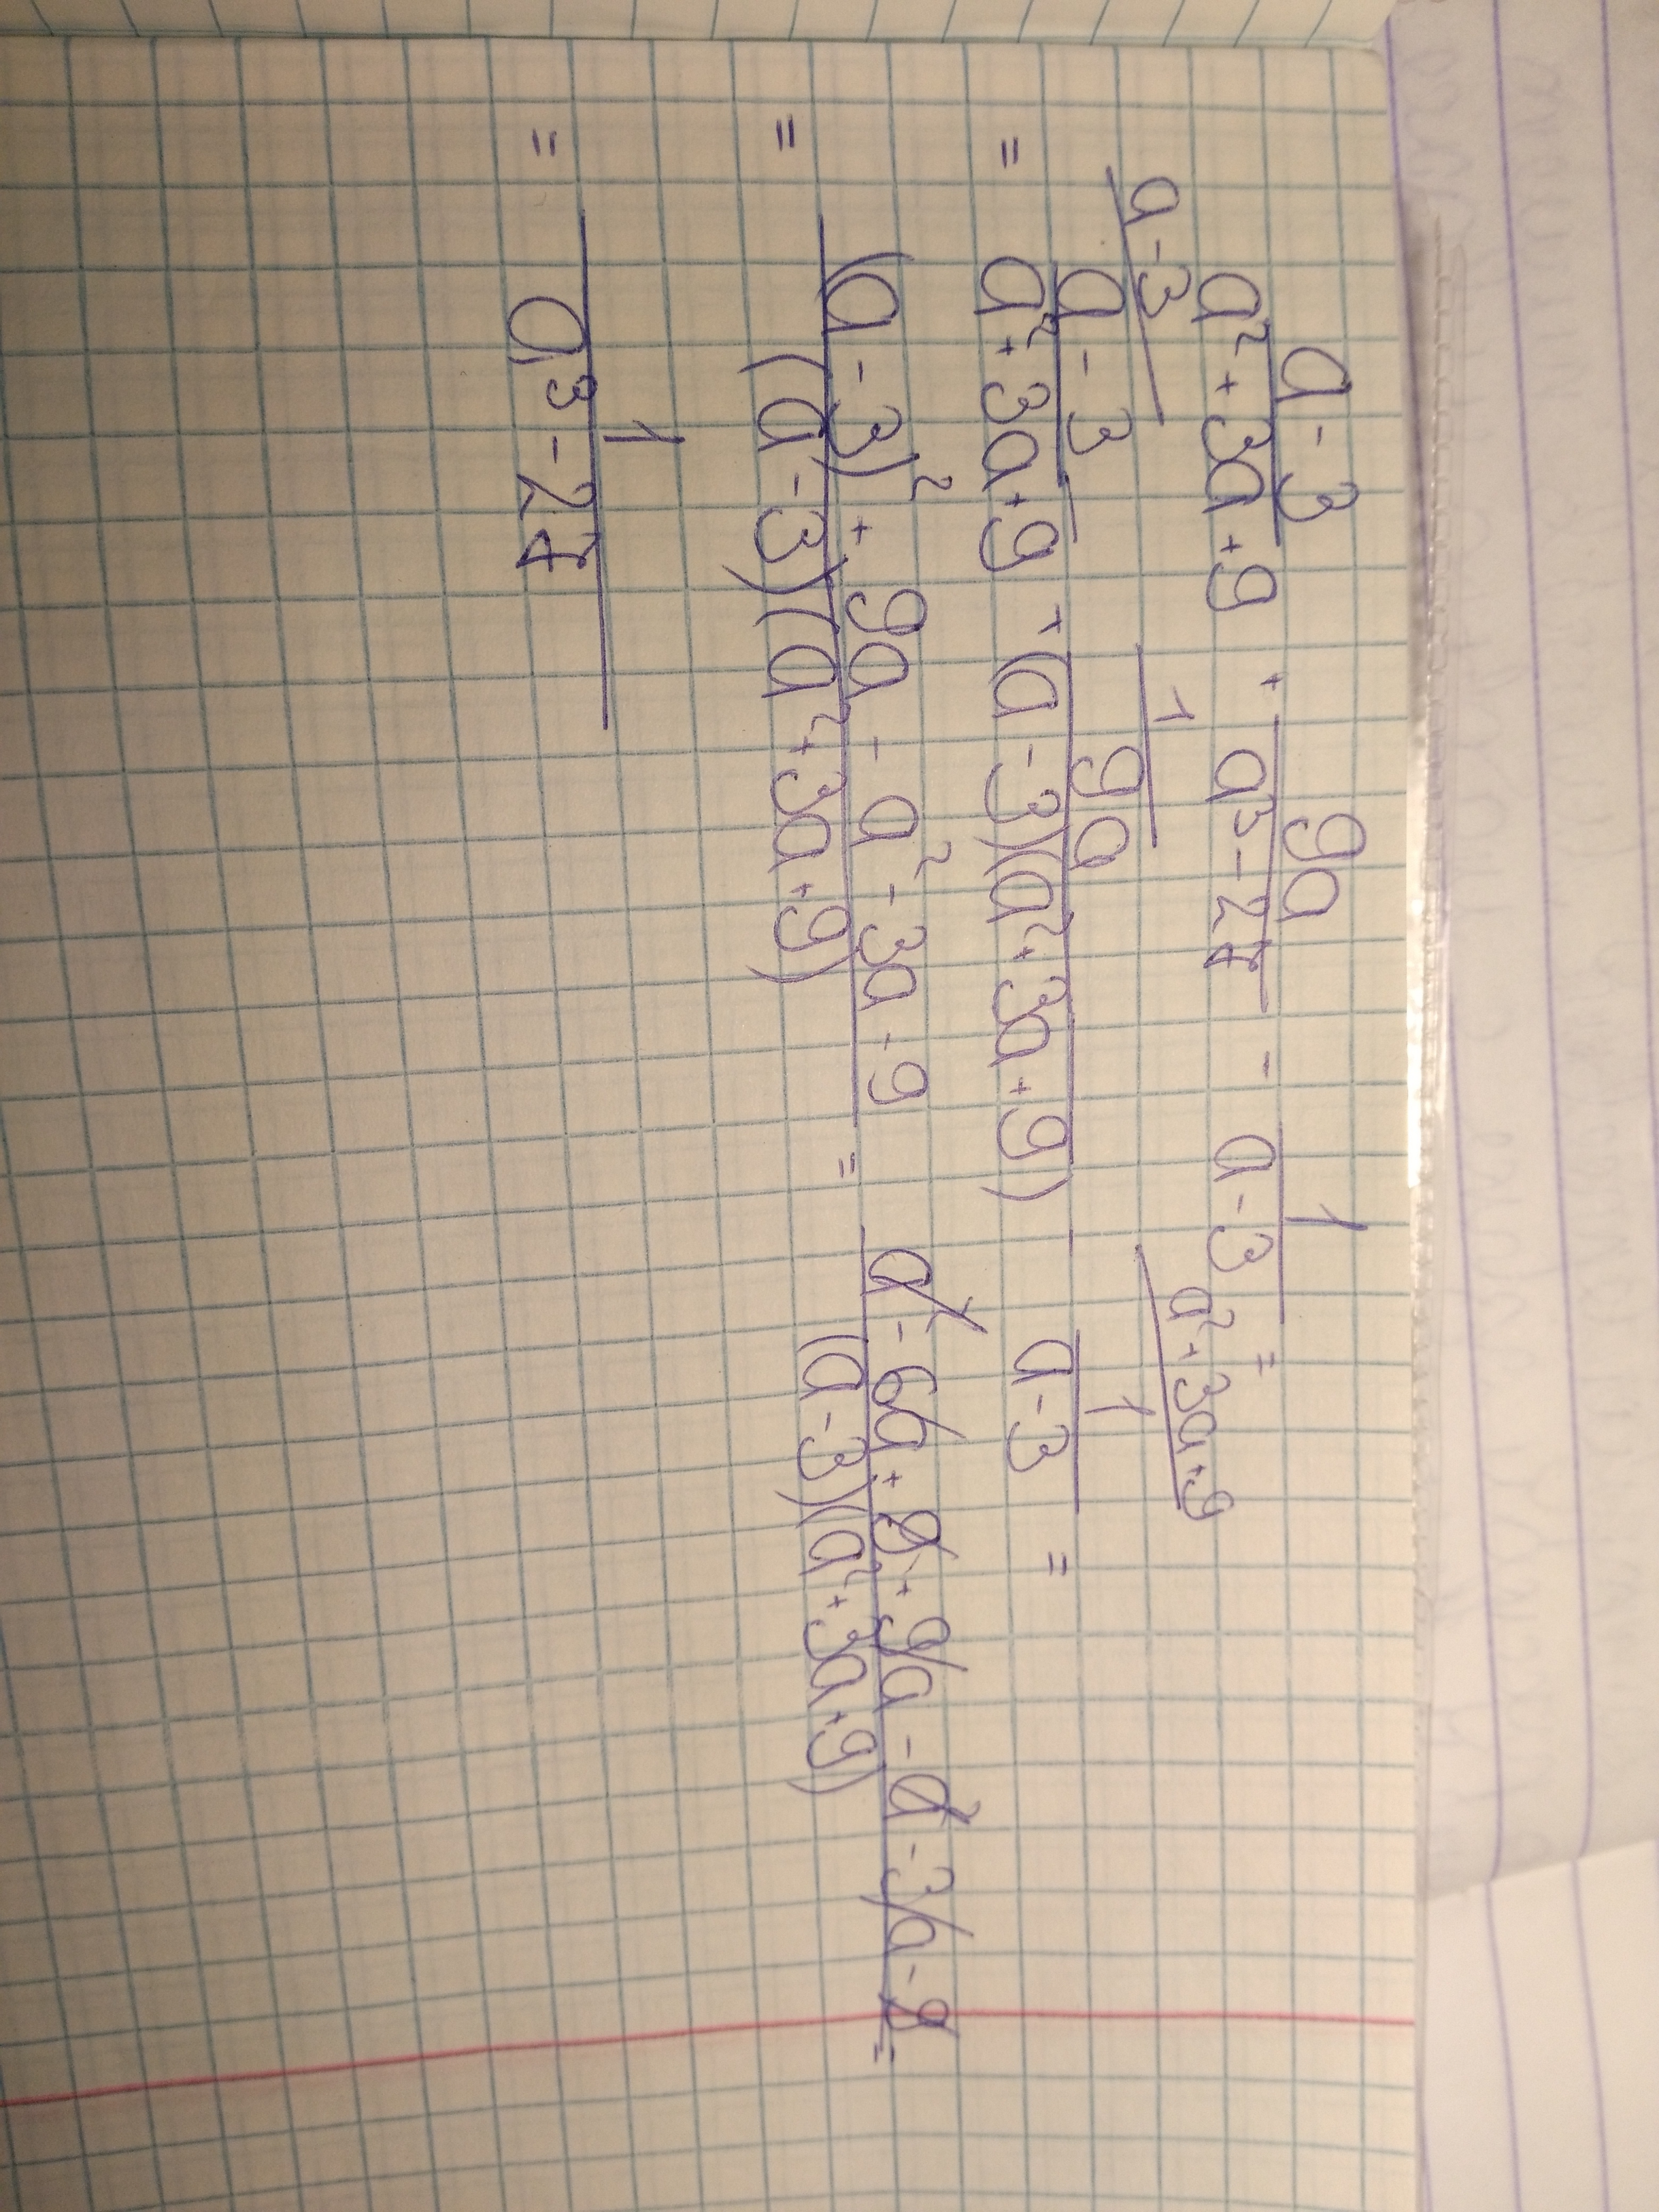 a-3/(a²+3a+9) + 9a/(a³-27) - 1/(a-3) =
= (a-3)/(a²+3a+9) \a-3 + 9a/((a-3)(a²+3a+9)) \1 - 1/(a-3) \a²+3a+9 =
= ((a-3)²+9a-a²-3a-9)/((a-3)(a²+3a+9)) = (a²-6a+9+9a-a²-3a-9)/((a-3)(a²+3a+9)) =
= 1/(a³-27)